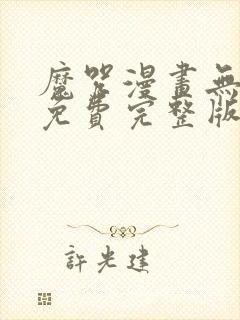 魔咒漫畫無
免費完整版
許光建